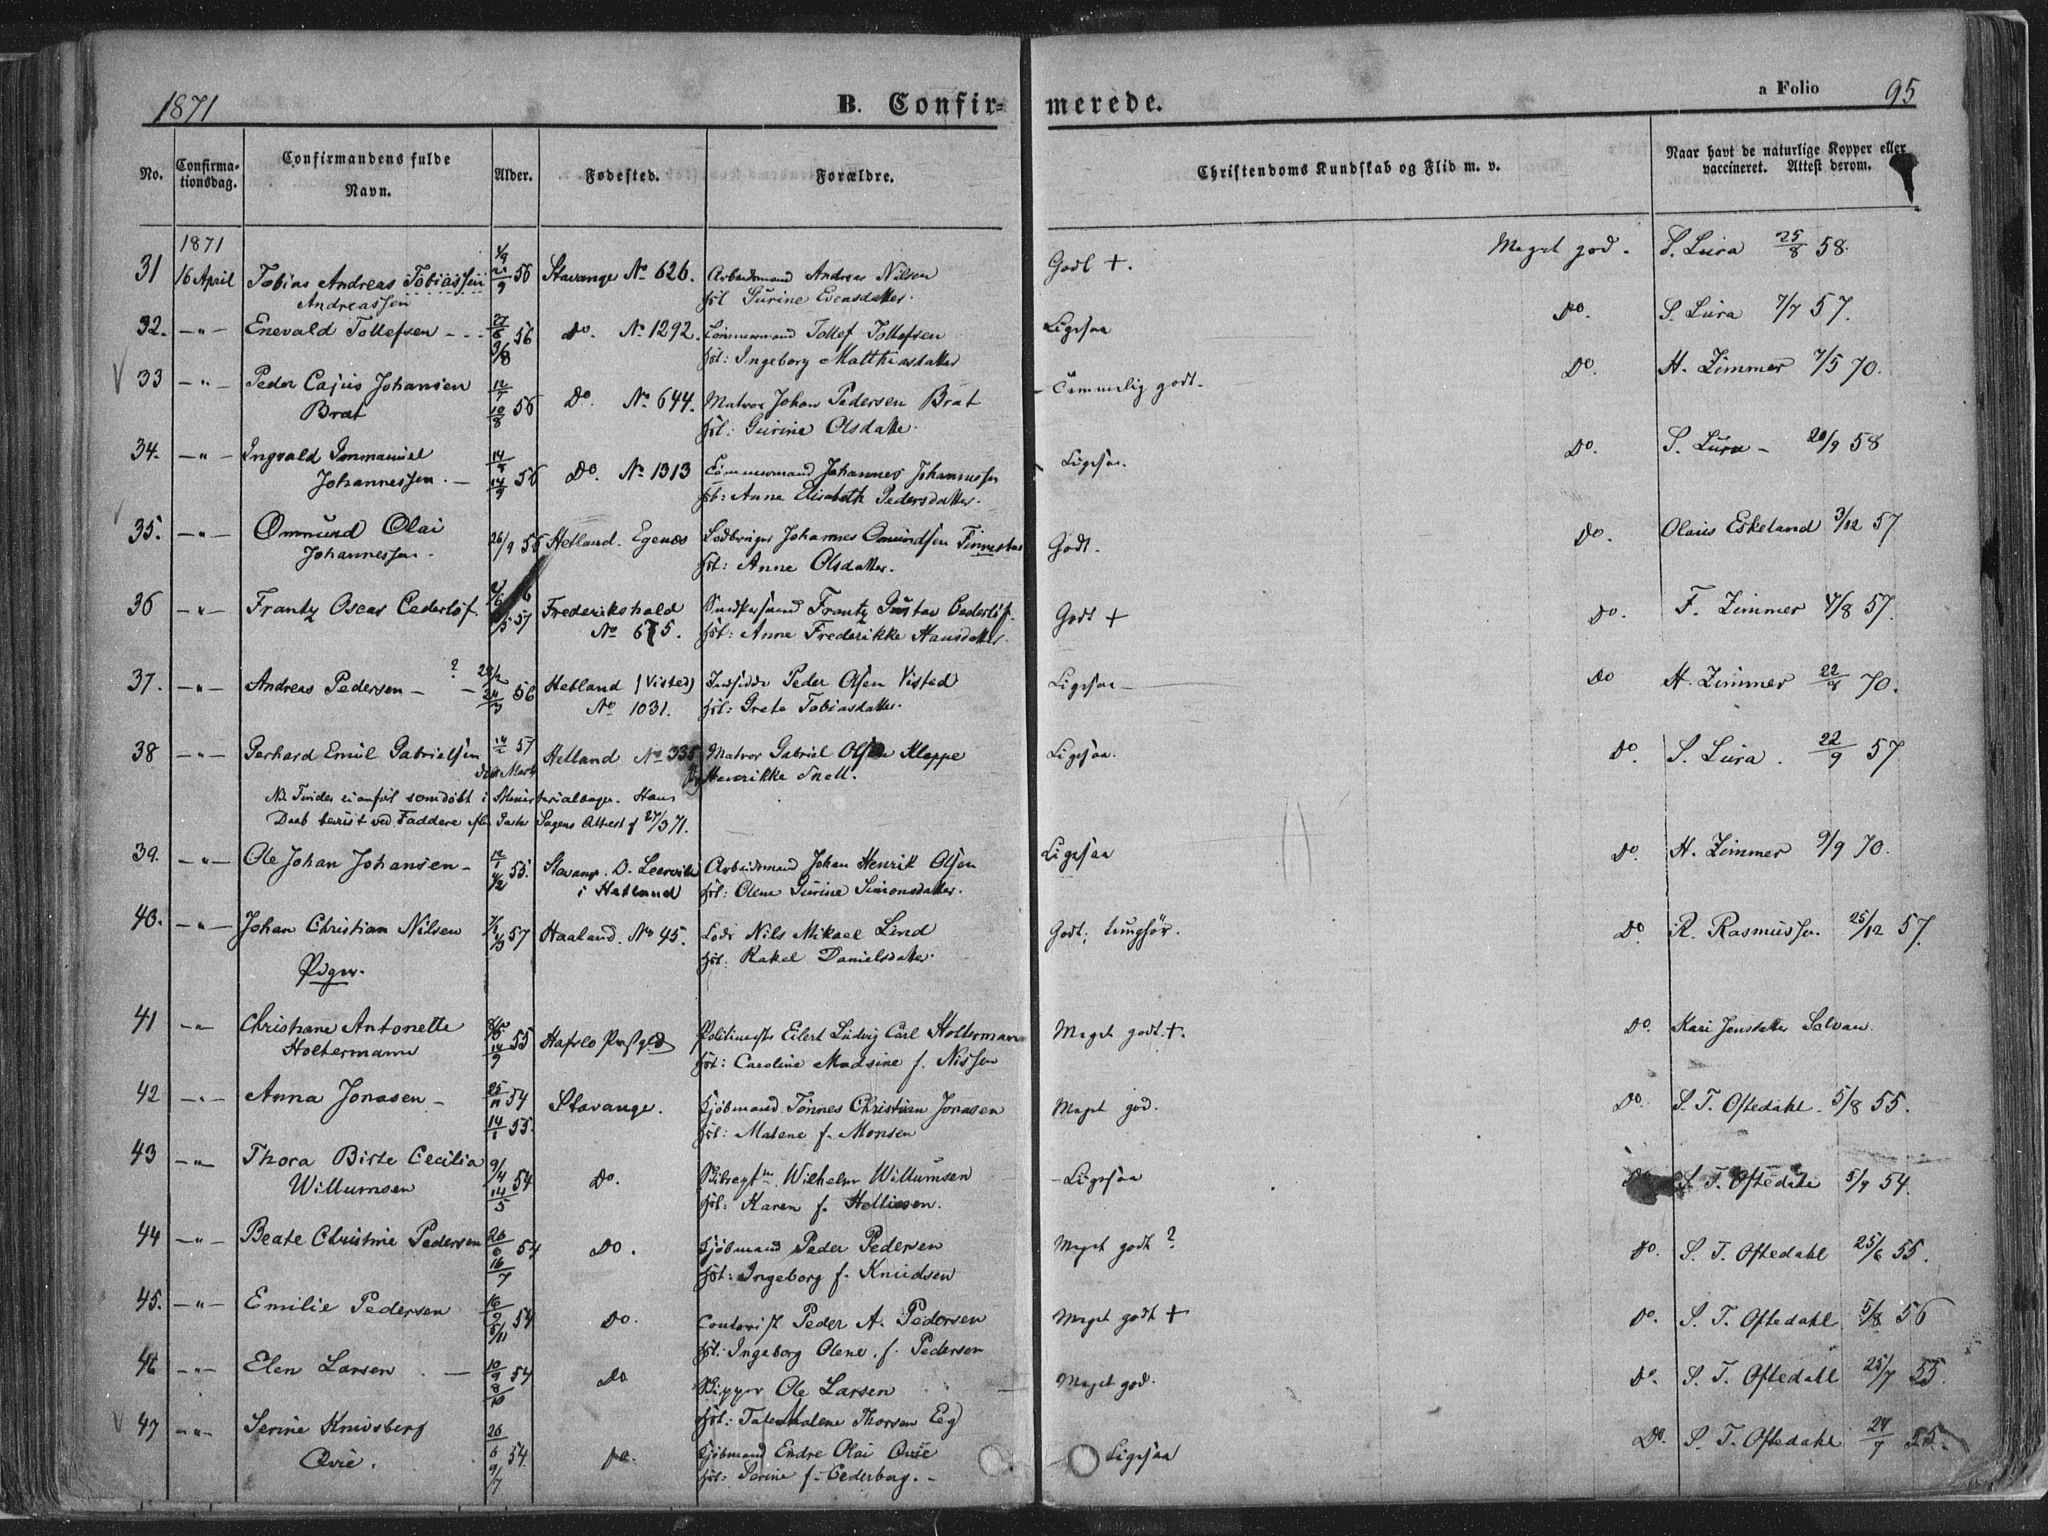 1871
B. Confirmerede.
a Folio 95
No.
Confirma-
tionsdag.
Confirmandens fulde
Navn.
Alder.
Fødested.
Forældre.
Christendoms Kundskab og Flid m. v.
Naar havt de naturlige Kopper eller
vaccineret. Attest derom.
1871
31 16 April Tobias Andreas Tobiassen 56 Stavange No 626. Arbeidsmand Andreas Nilsen Godt +. Meget god. S. Lura 25/8 58.
Andreassen Gurine Evensdatter.
32. -"- Enevald Tollefsen 27/6 56 Do. No 1292. Tømmermand Tollef Tollefsen Ligesaa Do. S. Lura 7/7 57.
3/8 Ingeborg Matthiasdatter
33 -"- Peder Cajus Johansen 12/7 56 Do. No 644. Matros Johan Pedersen Brat Temmelig godt. Do. H. Zimmer 7/5 70.
Brat 10/8 Gurine Olsdatter.
34. -"- Ingvald Immanuel 56 Do No 1313 Tømmermand Johannes Johannessen Ligesaa. Do. S. Lura 20/9 58
Johannessen. 14/9 Anne Elisabeth Pedersdatter.
35. -"- Ommund Olai 26/9 56 Hetland. Egenæs Johannes Omundsen Godt. Do. Olaus Eskeland 3/12 57
Johannessen. Anne Olsdatter.
36 -"- Frantz Oscar Cederløf 57 Frederikshald Frantz Gustav Cederløf. Godt + Do. F. Zimmer 4/8 57.
No 675. Anne Frederikke Hansdatter
37. -"- Andreas Pedersen ? 56 Hetland (Visted) Indsidder Peder Olsen Visted Ligesaa Do H. Zimmer 22/8 70.
No 1031. Grete Tobiasdatter.
38 -"- Gerhard Emil Gabrielsen 14/2 57 Hetland No 335 Matros Gabriel Olsen Kleppe Ligesaa. Do S. Lura. 22/9 57
Henrikke Snell.
i Ministerialbogen. Hans
Daab bevist ved Faddere Attest af 27/3 71.
39. -"- Ole Johan Johansen 12/1 55. Arbeidsmand Johan Henrik Olsen Ligesaa Do. H. Zimmer 9/9 70.
4/2 i Hetland Olene Gurine Simonsdatter.
40. -"- Johan Christian Nilsen 57 Haaland. No 45. Lods Nils Mikael Lind Godt, tunghør. Do. R. Rasmussen 25/12 57.
Rakel Danielsdatter.
Piger.
41 -"- Christiane Antonette 55 Hafslo Eilert Ludvig Carl Holtermann Meget godt +. Do. Kari Jensdatter Solvan.
Holtermann 14/9 Caroline Madsine f. Nissen
42 -"- Anna Jonasen 25/11 54 Stavange. Kjøbmand Tønnes Christian Jonasen Meget god. Do. S. T. Oftedahl. 5/8 55.
14/1 55. Malene f. Monsen
43 -"- Thora Birte Cecilia 9/4 54 Do. Wilhelm Willumsen Ligesaa Do. S. T. Oftedahl 5/9 54.
Willumsen 14/5 Karen f. Helliesen.
44 -"- Beate Christine Pedersen 54 Do. Kjøbmand Peder Pedersen Meget godt ? Do. S. T. Oftedahl 25/6 55.
16/7 Ingeborg f. Knudsen
45. -"- Emilie Pedersen 16/9 54 Do. Contorist Peder A. Pedersen Meget godt + Do. S. T. Oftedahl 5/8 56
5/11 Ingeborg Olene f. Pedersen
46 -"- Elen Larsen 10/9 54 Do Skipper Ole Larsen Meget god. Do. S. T. Oftedahl 25/7 55.
8/10 Thorsen Eeg
47 -"- Serine Knivsberg 26/6 54. Do. Kjøbmand Endre Olai Qvie Ligesaa Do. S. T. Oftedahl 24/7 55.
Qvie. 9/7 Serine f. Cederberg.